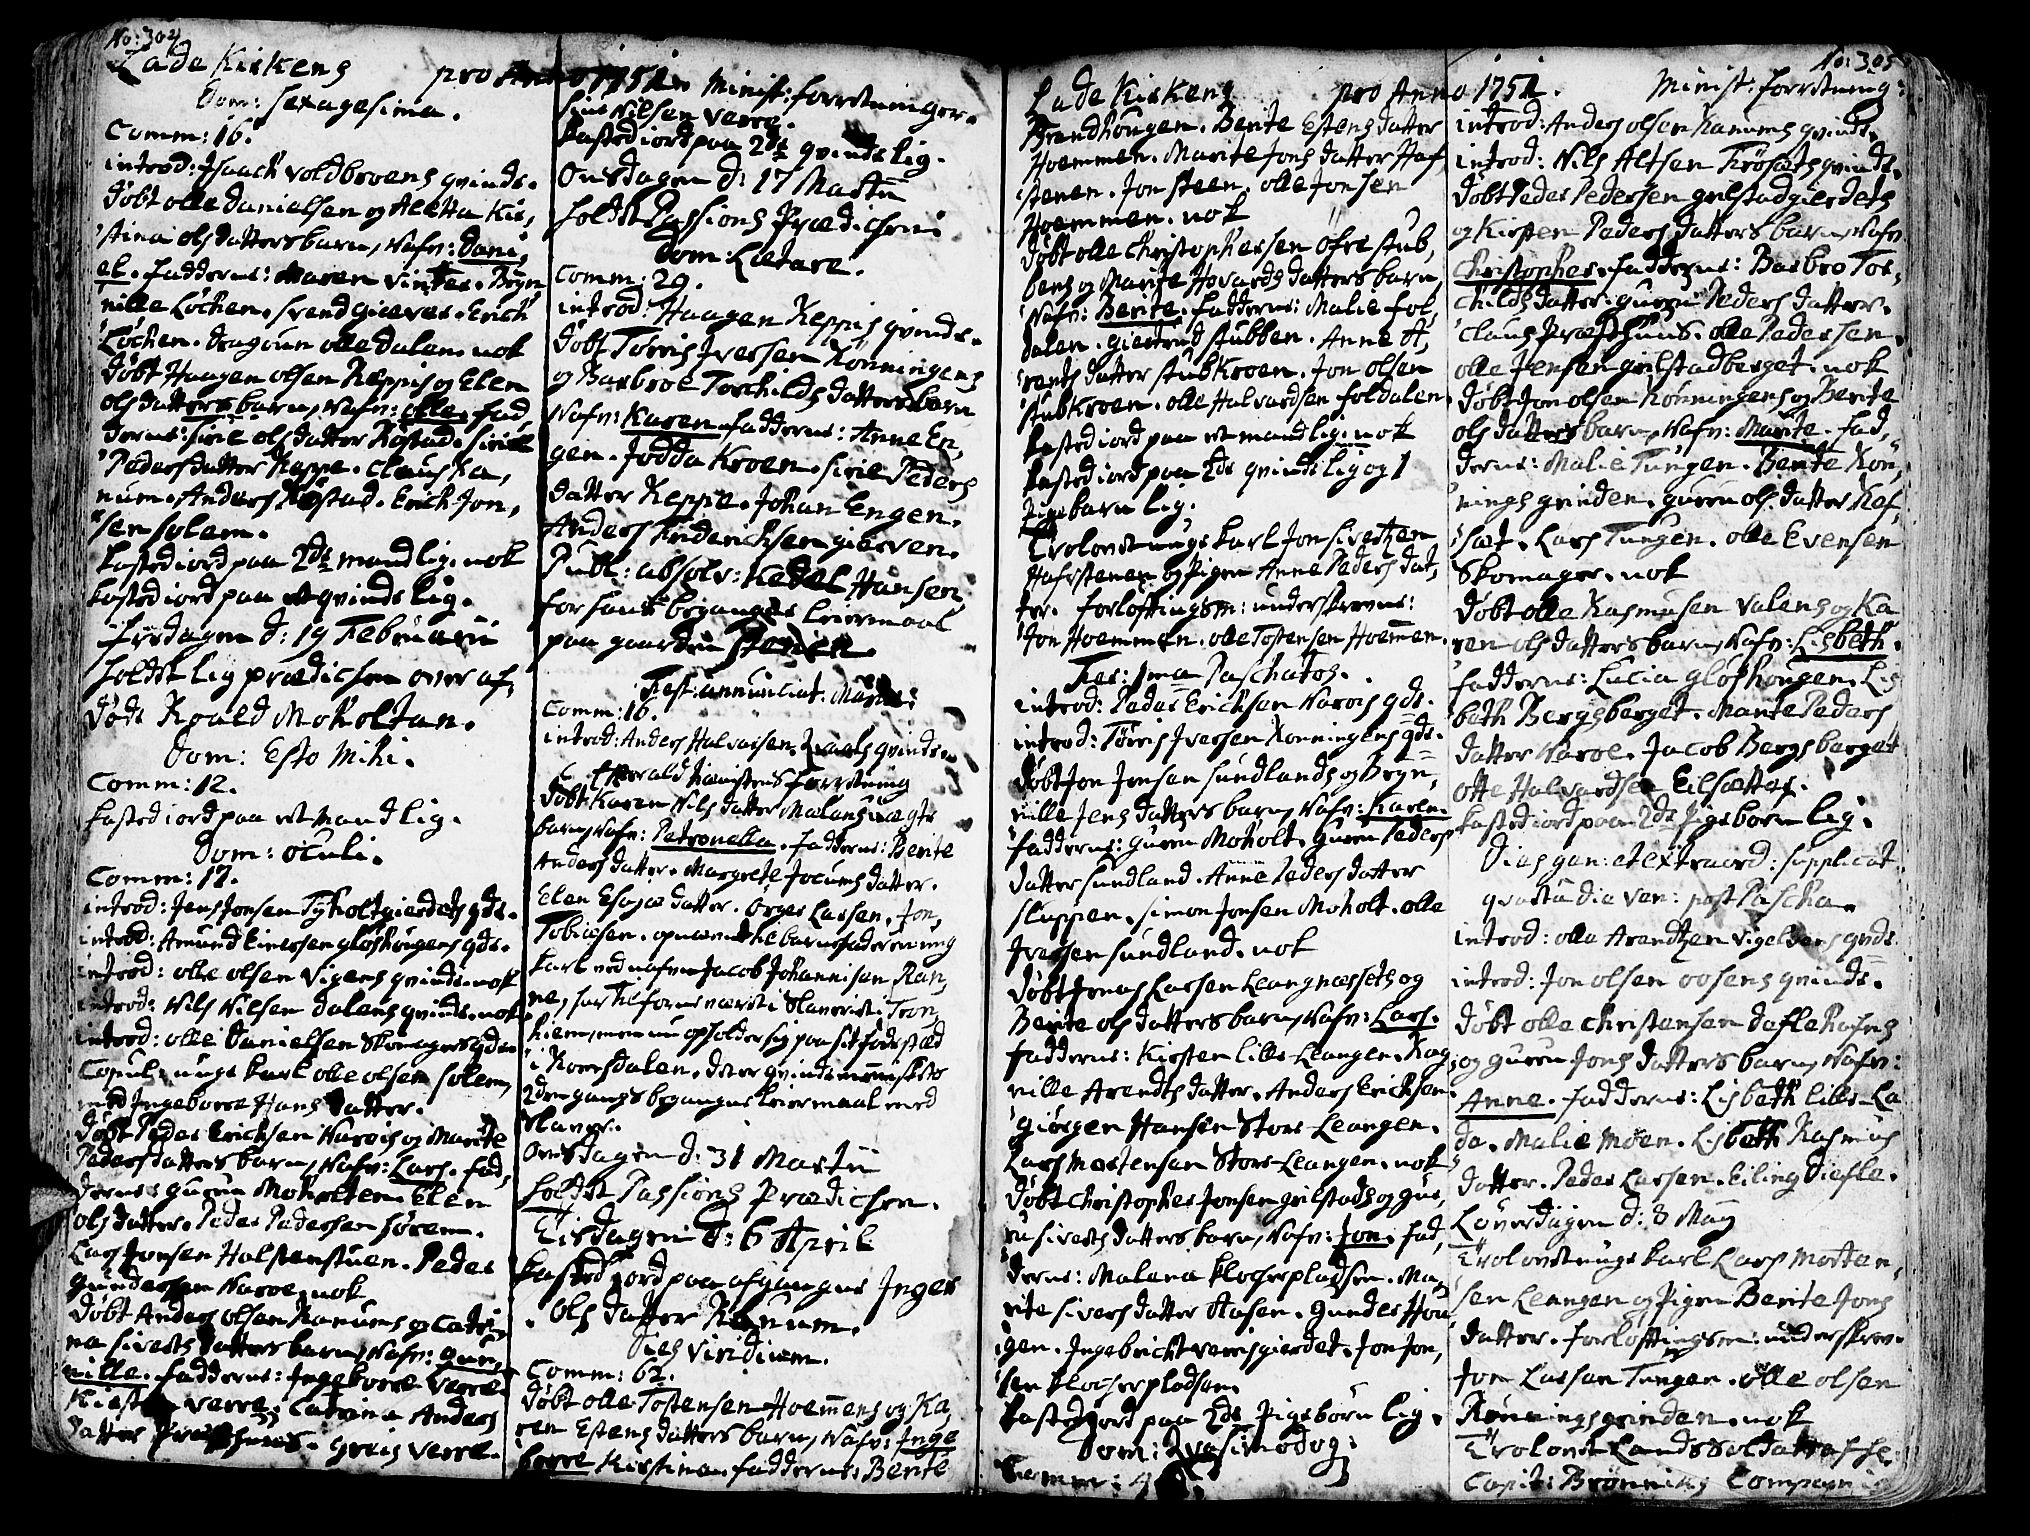 No: 304
Lade Kirkens pro Anno 1751. Minist: forretninger.
Dom: Sexagesima.
Comm: 16.
introd: Isaach Voldbroens qvinde.
Døbt olle Danielsen og Aletta Kir,
stina ols datters barn, Nafn: Dani,
el. fadderne: Maren Vinter. Bryn
nille Løchen. Svend Græver. Erich
Løchen. dragoun olle Dalen. nok
Døbt Haagen olsen Reppis og Elen
ols datters barn, Nafn: olle. fad,
derne: Sirie ols datter Rostad. Sirie
Peders datter Reppe. Claus Ra,
num. Anders Rostad. Erich Jon,
sen Solem.
Kasted iord paa 2de mand lig. nok
Kasted iord paa et qvinde lig.
fredagen d: 19 Februarii
holdt lig prædichen over af,
døde Roald Moholtan.
Dom: Esto Mihi.
Comm: 12.
Kasted iord paa et mand lig.
Dom: oculi.
Comm: 17.
introd: Jens Jonsen Tyholtgierdets qde.
introd: Amund Einersen gløshougens qde.
introd: olle olsen Vigens qvinde. nok
introd: Nils Nilsen Dalens qvinde. nok
introd: olle Danielsen Skomagers qde
Copul: unge karl olle olsen Solem,
med Ingeborre Hans datter.
Døbt Peder Erichsen Narois og Marite
Peders datters barn, Nafn: Lars. fad,
derne: guren Moholten. Elen
ols datter. Peder Pedersen Sørem.
Lars Jonsen Halstenstuen. Peder
gundersen Naroe. nok
Døbt Anders olsen Ranums og Catri,
na Siverts datters barn, Nafn: gun,
nille. fadderne: Ingeborre Verre
Kirsten Verre. Catrina Anders
datter Præsthuus. greis Verre.
Siur Nilsen Verre.
Kasted iord paa 2de qvinde lig.
Onsdagen d: 17 Martii
holdt Passions Prædichen.
Dom: Lætare.
Comm: 29.
introd: Haagen Reppis qvinde.
Døbt Torris Iversen Rønningens
og Barbroe Torchilds datters barn
Nafn: Karen. fadderne: Anne En,
gen. Jødda Kroen. Sirie Peders
datter Reppe. Johan Engen.
Anders Hendrichsen gierven.
Publ: absolv: Kedel Hansen
for sank begangne Leiermaal
paa gaarden Stenen.
Fest: annunciat: Mariæ:
Comm: 16.
introd: Anders Halvorsen qvinde.
Døbt Karen Nils datter Malens uægte
barn, Nafn: Petronella. fadderne: Berite
Anders datter. Margrete Jocums datter.
Elen Esaiæ datter. Ørger Larsen. Jon,
Tobiæsen. opnævnte barnefaderen ung
karl ved nafn Jacob Johannisen Ran,
ne, har tilforne været i Slaveriet i Tron,
hiem, men nu opholder sig paa sit føde stæd
i Romsdalen. dette qvindemenniskets
2den gangs begangne Leiermaal med
Slaver.
Onsdagen d: 31 Martii
holdt Passions Prædichen.
Tirsdagen d: 6 April
Kasted iord paa afgangne Inger
ols datter Ranum.
Dies Viridium.
Comm: 62.
Døbt olle Tostensen Hoemens og Ka,
ren Estens datters barn, Nafn: Inge
borre Kirstina. fadderne: Berite
No: 305
Lade Kirkens pro Anno 1751. Minist: forretning:
Brendhougen. Berite Estens datter
Hoemmen. Marite Jons datter Haf,
stenen. Jon Steen. olle Jonsen
Hoemmen. nok
Døbt olle Christophersen Øfre stub,
bens og Marite Hovards datters barn,
Nafn: Berite. fadderne: Malie fol,
dalen. giertrud Stubben. Anne A,
rents datter Stubkroen. Jon olsen
Stubkroen. olle Halvardsen foldalen.
Kasted iord paa et mand lig. nok
Kasted iord paa 2de qvinde lig og 1
Pige barn lig.
Trolovet unge karl Jon Sivertzen
Hafrstenen og Pigen Anne Peders dat,
ter. forlofftingsm: underskrevne:
Jon Hoemmen. olle Tostensen Hoemen.
Fer: 1ma Paschatos.
introd: Peder Erichsen Narois qde.
introd: Tørris Iversen Rønningens qde.
Døbt Jon Jonsen Sundlands og Bryn,
nille Jens datters barn, Nafn: Karen.
fadderne: guren Moholt. guren Peders
datter Sundland. Anne Peders datter
Sluppen. Simon Jonsen Moholt. olle
Iversen Sundland. nok
Døbt Jonas Larsen Leangnæssets og
Berite ols datters barn, Nafn: Lars.
fadderne: Kirsten Lille Leangen. Rag
nille Arendts datter. Anders Erichsen
giørgen Hansen Store Leangen.
Lars Mortensen Store Leangen. nok
Døbt Christopher Jonsen grilstads og gun,
ru Siverts datters barn, Nafn: Jon. fad,
derne: Malena Klocherpladsen. Ma,
rite Sivers datter Aasen. gunder Hou
gen. Ingebricht Verrisgierdet. Jon Jon,
sen Klocherpladsen.
Kasted iord paa 2de Pige børn lig.
Dom: Qvasimodog:
Comm: 4
introd: Anders olsen Ranums qvinde.
introd: Nils Altsen Trøsæts qvinde.
Døbt Peder Pedersen grilstadgierdets
og Kirsten Peders datters barn, Nafn
Christopher. fadderne: Barbro Tor,
childs datter. guren Peders datter.
Claus Præsthuus. olle Pedersen.
olle Jensen grilstadberget. nok
Døbt Jon olsen Rønningens og Berite
ols datters barn, Nafn: Marite. fad,
derne: Malie Tungen. Berite Røn,
nings grinden. guren ols datter Raf,
sæt. Lars Tungen. olle Evensen
Skomager. nok
Døbt olle Rasmusen Valens og Ka
ren ols datters barn, Nafn: Lisbeth.
fadderne: Lucia gløshougen. Lis
beth Bergsberget. Marite Peders
datter Naroe. Jacob Bergsberget
otte Halvardsen Eilsætter.
Kasted iord paa 2de Pige børn lig.
Dies gen: et extraord: supplicat.
qvartâ dia ven: post Pascha.
introd: olle Arendtzen Vigelsens qvde.
introd: Jon olsen oosens qvinde.
Døbt olle Christensen Deflehafns
og guren Jons datters barn, Nafn:
Anne. fadderne: Lisbeth Lille La
de. Malie Moen. Lisbeth Rasmus
datter. Peder Larsen. Eiling Diefle.
Løverdagen d: 8 May
Trolovet unge karl Lars Morten,
sen Leangen og Pigen Berite Jons
datter. forlofftingsm: underskrev.
Jon Larsen Tungen. olle olsen
Rønningsgrinden. nok
Trolovet Land Soldat af Hr.
Capit: Brønnies Compagnie